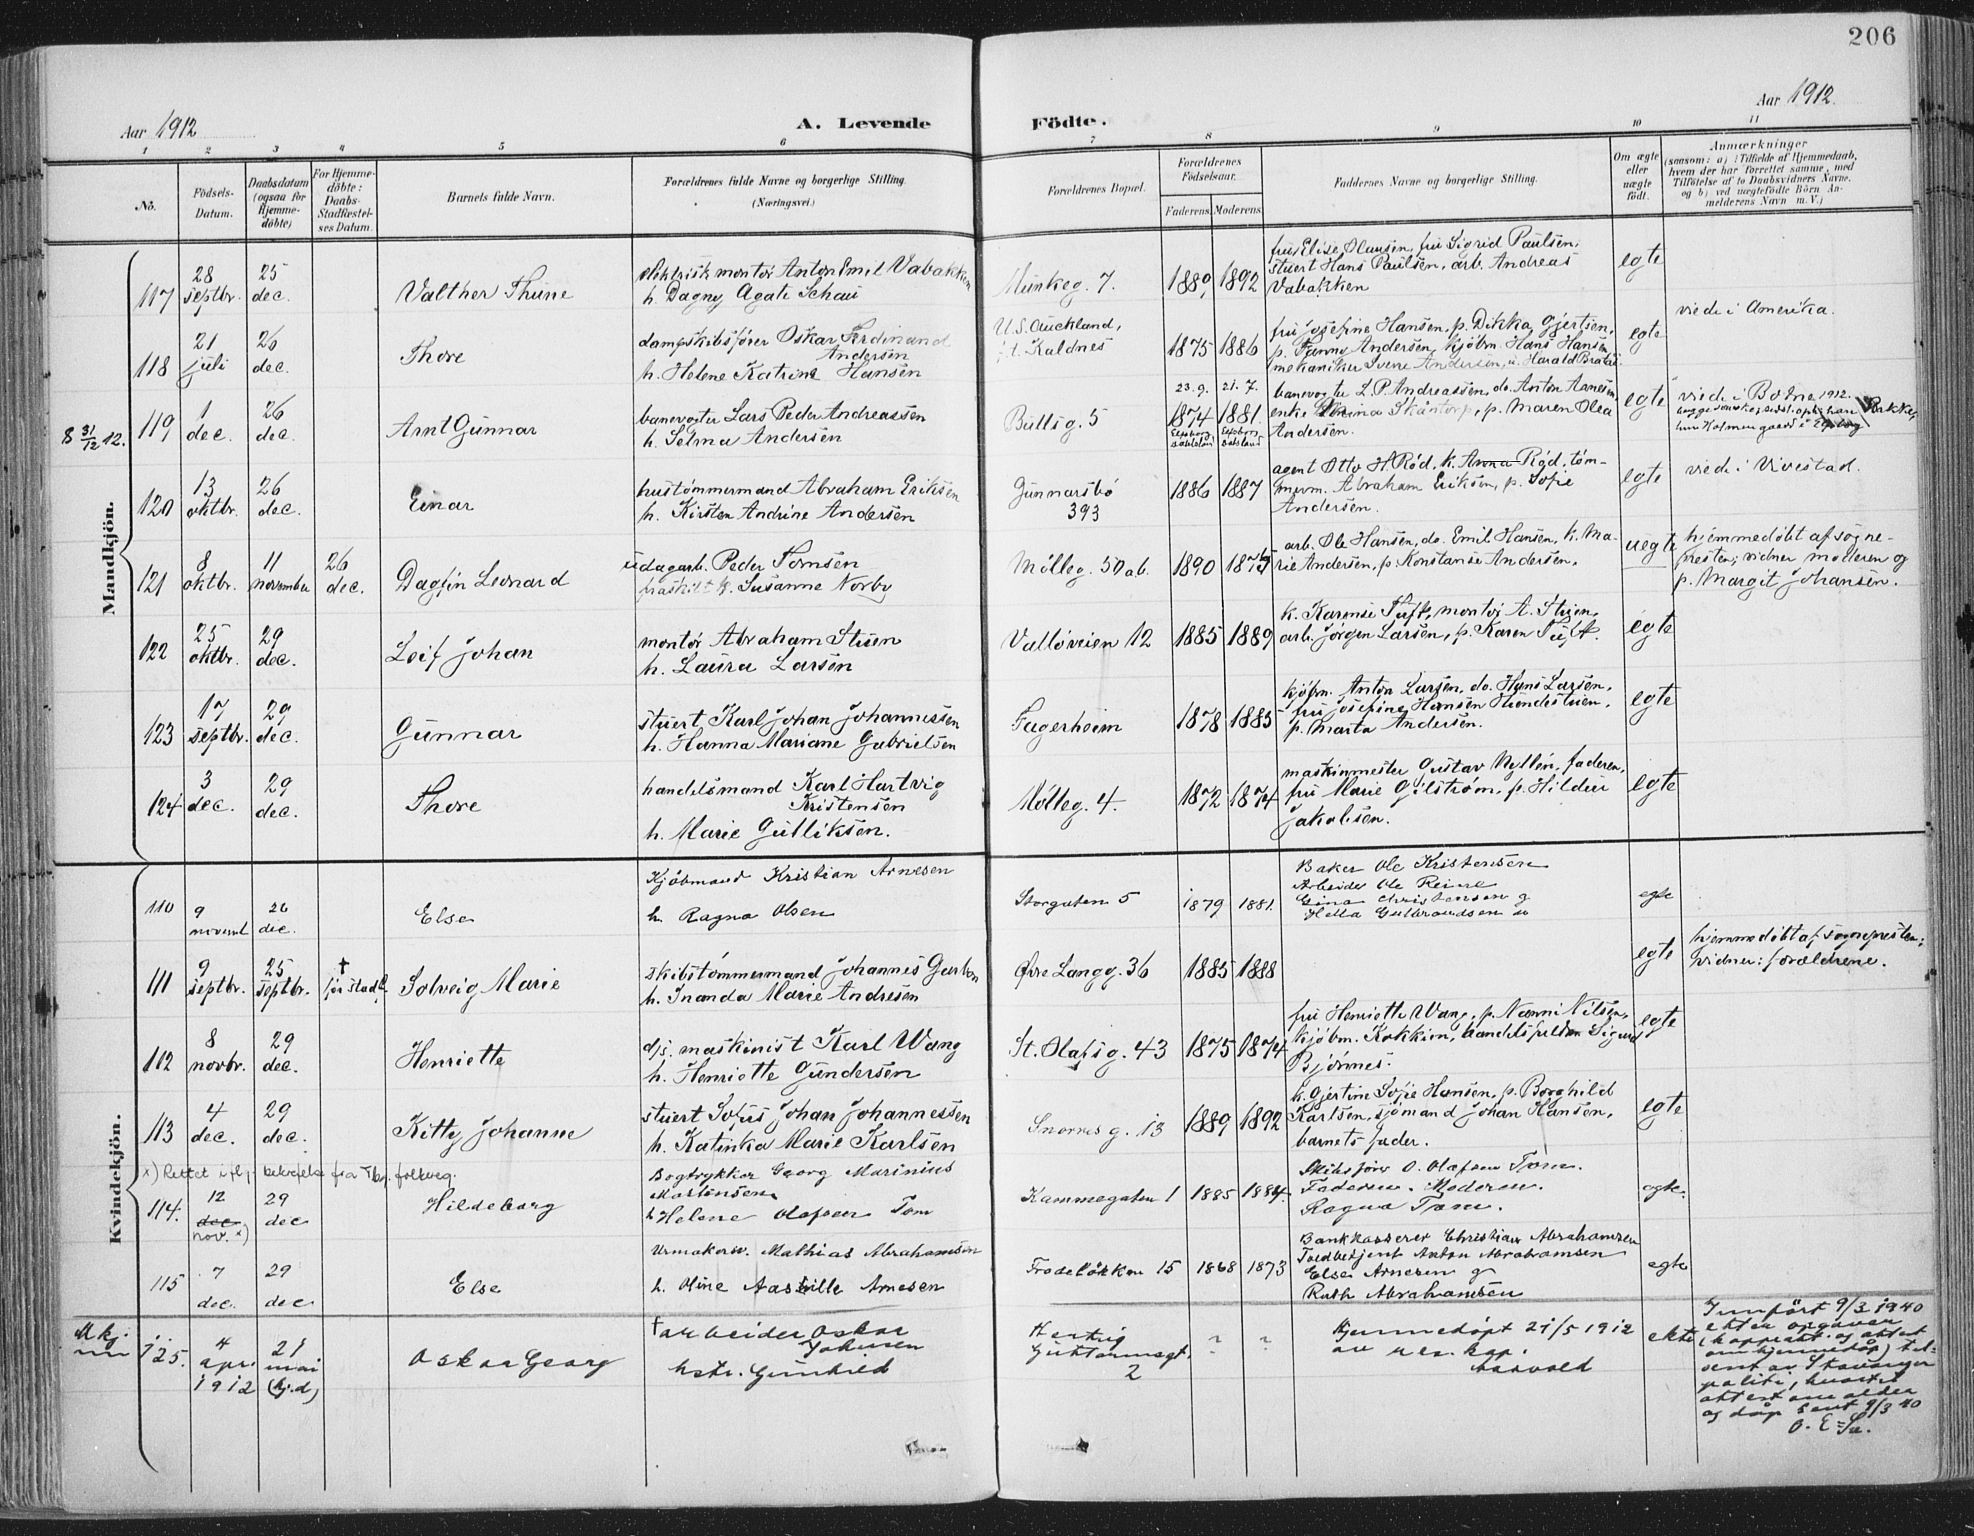 206
Aar 1912
A. Levende
Födte.
Aar 1912.
1 2 3 4 5 6 7 8 9 10 11
No.
Födsels-
Datum.
Daabsdatum
(ogsaa for
Hjemme-
döbte)
For Hjemme-
döbte:
Daabs-
Stadfæstel-
ses Datum.
Barnets fulde Navn.
Forældrenes fulde Navne og borgerlige Stilling.
(Næringsvei.)
Forældrenes Bopæl.
Forældrenes
Födselsaar.
Faderens. Moderens.
Faddernes Navne og borgerlige Stilling.
Om ægte
eller
uægte
födt.
Anmærkninger
(saasom: a) i Tilfælde af Hjemmedaab,
hvem der har forrettet samme, med
Tilföielse af to Daabsvidners Navne,
og b) ved uægtefödte Börn An-
melderens Navn m.V.)
Mandkjön.
117
28
septbr.
25
dec.
Valther Thune
elektrisk montör Anton Emil Vabakken
h. Dagny Agate Schau
Munkeg. 7.
1880 1892
fru Elise Olausen, fru Sigrid Paulsen,
stuert Hans Paulsen, arb. Andreas
Vabakken
egte
118
21
juli
26
dec.
Thore
dampskibsförer Oskar Ferdinand
Andersen
h. Helene Katrine Hansen
U.S. Auckland,
Kaldnes
1875 1886
fru Josefine Hansen, p. Dikka Gjertsen,
p. Fanny Andersen, kjöbm. Hans Hansen
mekaniker Sverre Andersen, u. Harald Bratli
egte
viede i Amerika.
8 31/12 12.
119
1
dec.
26
dec.
Arnt Gunnar
banevogter Lars Peder Andreassen
h. Selma Andersen
Bullsg. 5
23.9. 21.7.
1874 1881
banevogter L. P. Andreassen, do. Anton Arnesen
enke Skantorp, p. Maren Olea
Andersen.
egte
viede i Bodne 1912.
120
13
oktbr.
26
dec.
Einar
hustömmermand Abraham Eriksen
h. Kirsten Andrine Andersen
Gunnarsbö
393
1886 1887
agent Otto H. Röd, k. Anna Röd, töm-
merm. Abraham Eriksen, p. Sofie
Andersen.
egte
viede i Vivestad.
121
8
oktbr.
11
november
26
dec.
Dagfin Leonard
dagarb. Peder Tomsen
fraskilt k. Susanne Norby
Mölleg. 50 ab.
1890 1875
arb. Ole Hansen, do. Emil Hansen, k. Ma-
rie Andersen, p. Konstanse Andersen.
uegte
hjemmedöbt af sogne-
presten; vidner moderen og
p. Margit Johansen.
122
25
oktbr.
29
dec.
Leif Johan
montör Abraham Stuen
h. Laura Larsen
Vallöveien 12
1885 1889
k. Karense Tuft, montör A. Stuen,
arb. Jörgen Larsen, p. Karen Tuft.
egte
123
17
septbr.
29
dec.
Gunnar
stuert Karl Johan Johannessen
h. Hanna Mariane Gabrielsen
Fagerheim
1878 1885
kjöbm. Anton Larsen, do. Hans Larsen,
fru Josefine Hansen Hundestuen,
p. Marta Andersen.
egte
124
3
dec.
29
dec.
Thore
handelsmand Karl Hartvig
Kristensen
h. Marie Gulliksen.
Mölleg. 4.
1872 1874
maskinmester Gustav Nyllén, faderen,
fru Marie Gilström, p. Hildur
Jakobsen.
egte
Kvindekjön.
110
9
novemb
26
dec.
Else
Kjöbmand Kristian Arnesen
h. Ragna Olsen
Storgaten 5
1879 1881.
Baker Ole Kristensen
Arbeider Ole Reine
Gina Christensen g
Hella Gulbrandsen u
egte
111
9
septbr.
25
septbr.
†
för stadf.
Solveig Marie
skibstömmermand Johannes Garbon
h. Inanda Marie Andresen
Övre Langg. 36
1885 1888
egte
hjemmedöbt af sognepresten;
vidner: forældrene.
112
8
novbr.
29
dec.
Henriette
d/s. maskinist Karl Wang
h. Henriette Gundersen
St. Olafsg. 43
1875 1874
fru Henriette Wang, p. Nanni Nilsen,
kjöbm. Kokkin, handelsfuldm Sigurd
Björnnes.
egte
113
4
dec.
29
dec.
Kitty Johanne
stuert Sofus Johan Johannessen
h. Katinka Marie Karlsen
Snorresg. 13
1889 1892
k. Gjertine Sofie Hansen, p. Borghild
Karlsen, sjömand Johan Hansen,
barnets fader.
egte
x) Rettet ifl. bekreftelse fra Tbg. folkereg.
114.
12
dec
nov. x)
29
dec
Hildeborg
Bogtrykker Georg Marinius
Martensen
h Helene Olafsen Tom
Kammegaten 1
1885 1884.
Skibsförer O. Olafsen Tom.
Faderen. Moderen.
Ragna Tom.
egte.
115
7
dec.
29
dec
Else
Urmakersv. Mathias Abrahamsen
h. Oline Aashille Arnesen
Frodelökken 15
1868 1873
Bankkasserer Christian Abrahamsen
Toldbetjent Anton Abrahamsen
Else Arnesen g
Ruth Abrahamsen
egte
Mkj
125.
4
apr.
1912
21
mai
(hj.d)
Oskar Georg
arbeider Oskar
Johnsen
hstr. Gunhild
Hertug
Guttormsgt.
2
Hjemmedöpt 21/5 1912
av res. kap.
Aasvold
ekte
Innfört 9/3 1940
etter opgaver
(kopprakt. og attest
om hjemmedåp) til-
sent av Stavanger
politi, hvortil
attest om alder
og dåp sent 9/3 40